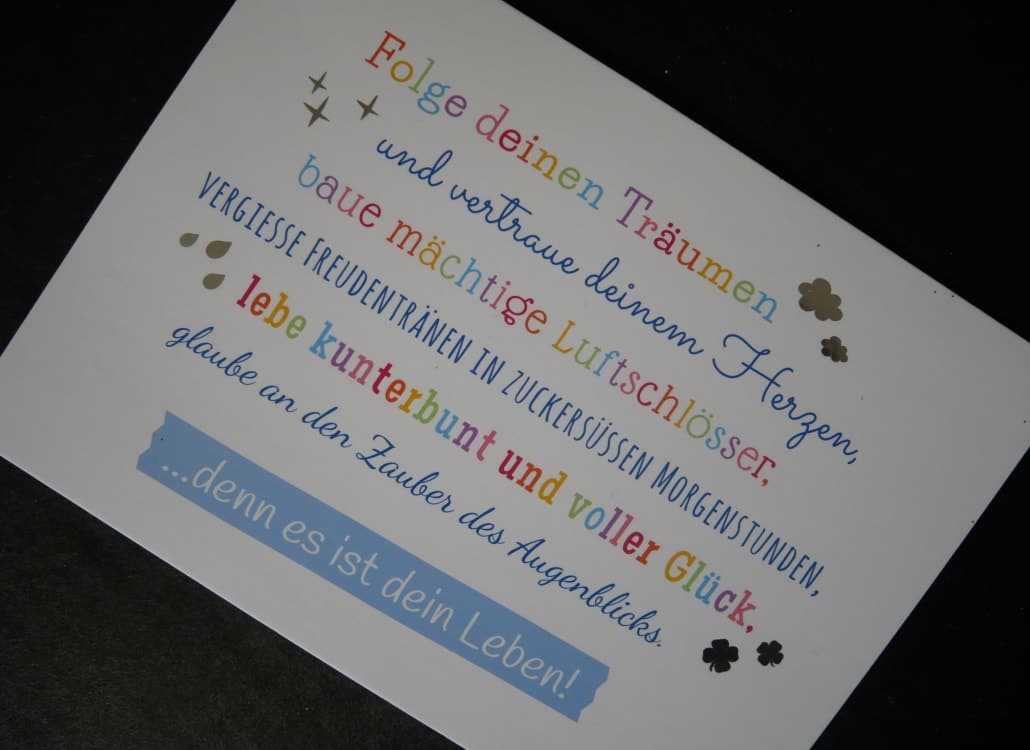 Folge deinen Träumen
und vertraue deinem Herzen,
baue mächtige Luftschlösser,
VERGIESSE FREUDENTRÄNEN IN ZUCKERSÜSSEN MORGENSTUNDEN,
lebe kunterbunt und voller Glück,
glaube an den Zauber des Augenblicks.
...denn es ist dein Leben!